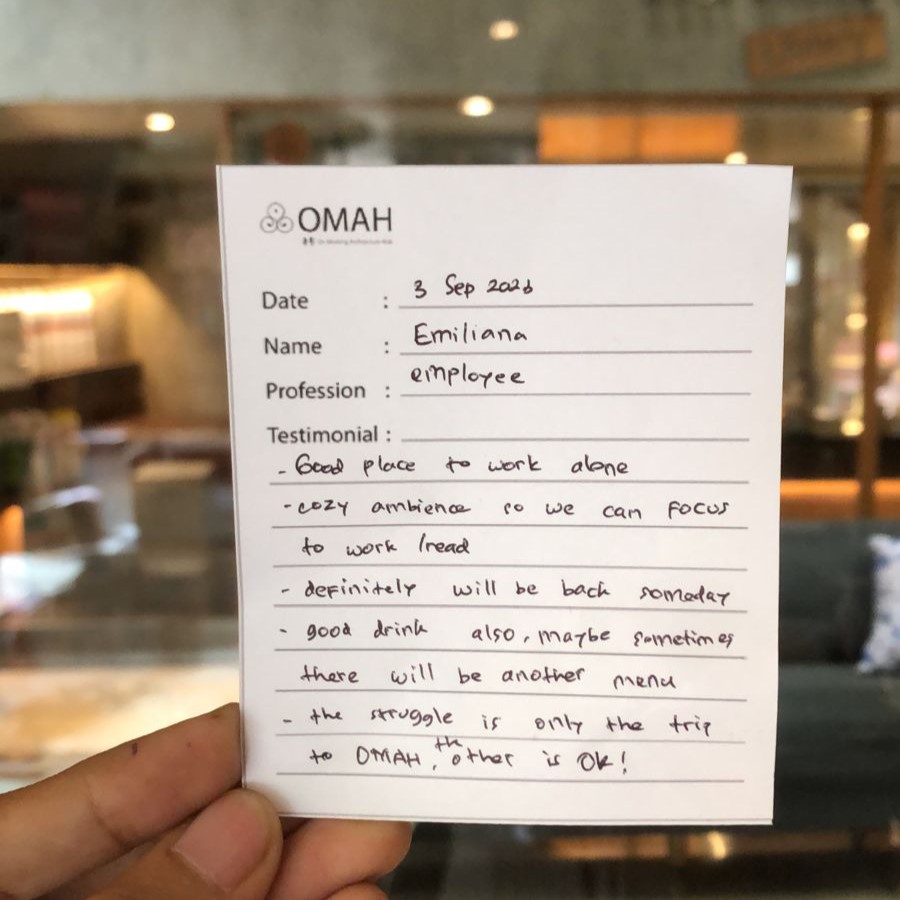 OMAH
Date : 3 Sep 2026
Name : Emiliana
Profession : employee
Testimonial :
- Good place to work alone
- cozy ambience so we can focus
to work /read
- definitely will be back someday
- good drink also, maybe sometimes
there will be another menu
- the struggle is only the trip
to OMAH, the other is Ok!